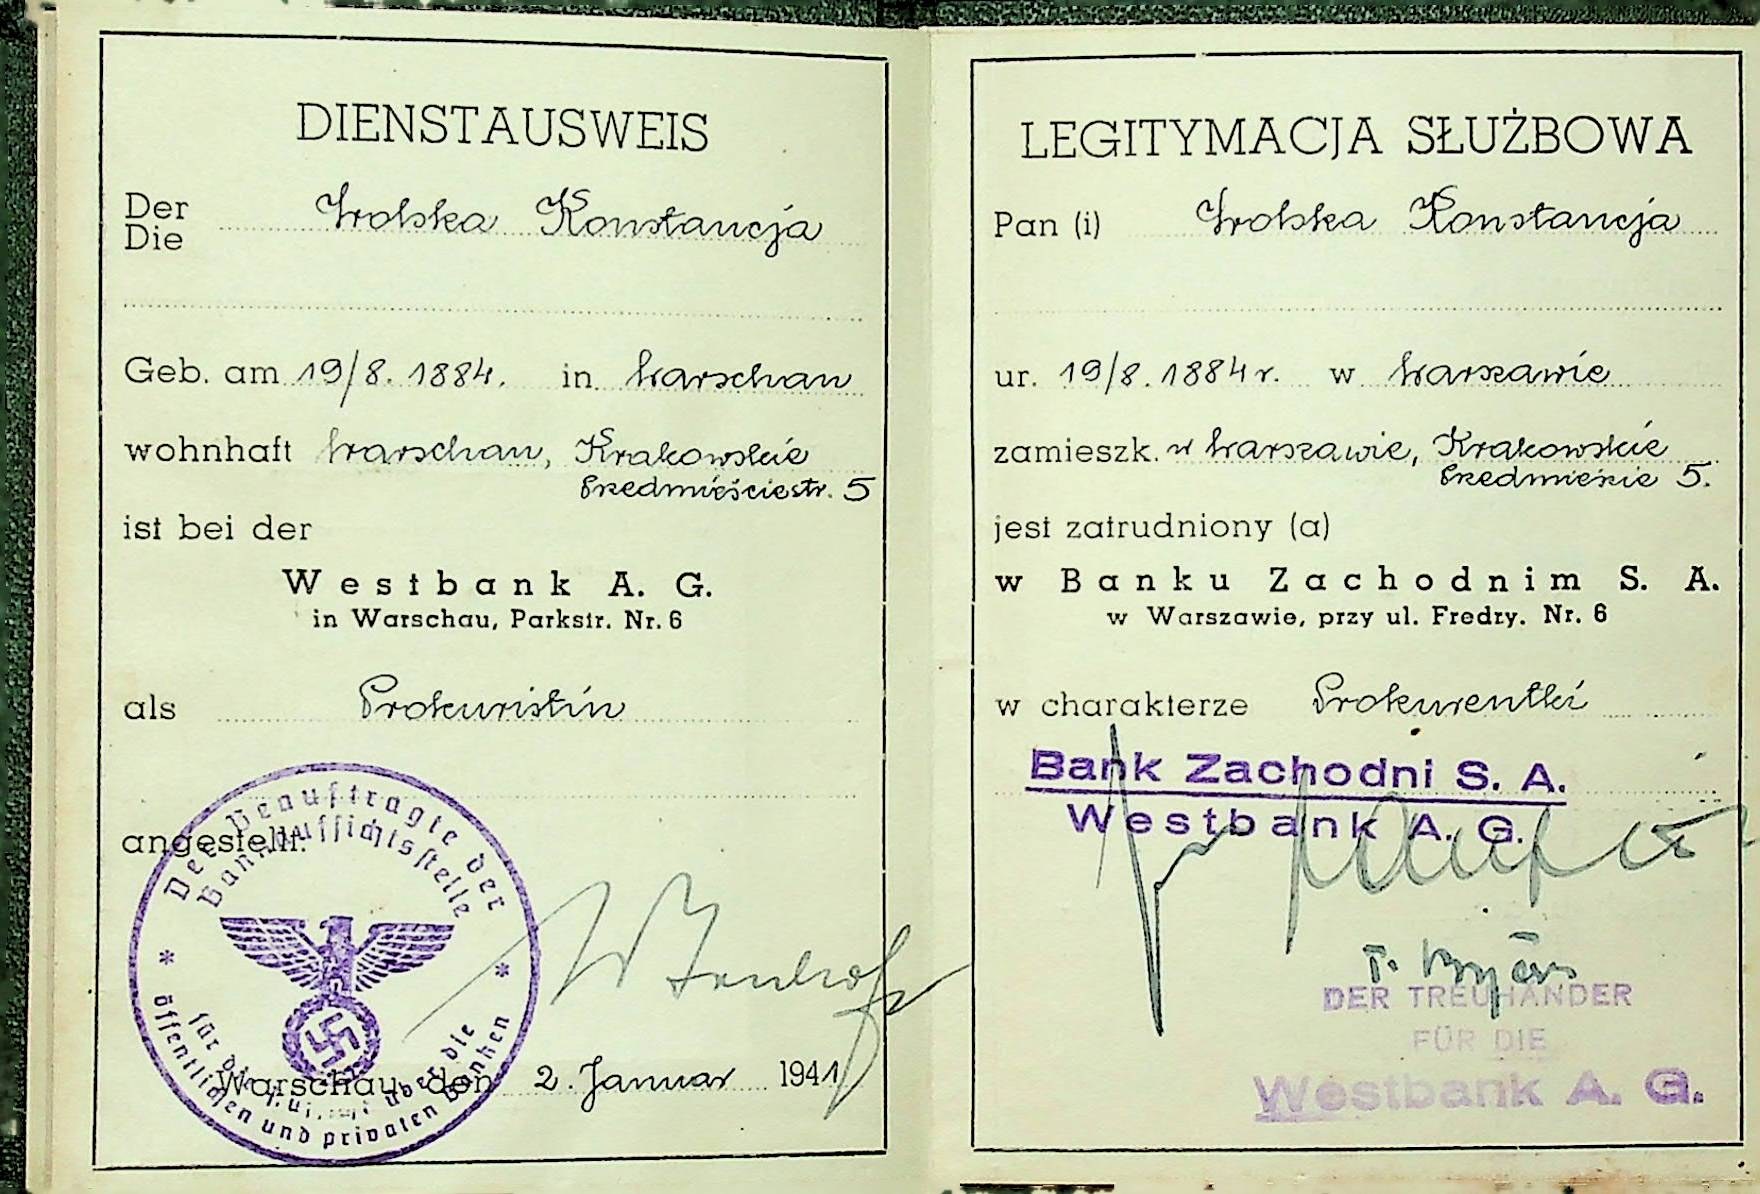 DIENSTAUSWEIS
Der
Die
Wolska Konstancja
Geb. am 19/8. 1884. in Warschau
wohnhaft Warschau, Krakowskie
Przedmieściestr. 5
ist bei der
Westbank A. G.
in Warschau, Parkstr. Nr. 6
als Prokuristin
angestellt.
Der Beauftragte der
Bankaufsichtsstelle
für die Aufsicht über die
öffentlichen und privaten Banken
Warschau, den 2. Januar 1941
LEGITYMACJA SŁUŻBOWA
Pan (i) Wolska Konstancja
ur. 19/8. 1884 r. w Warszawie
zamieszk. w Warszawie, Krakowskie
Przedmieście 5.
jest zatrudniony (a)
w Banku Zachodnim S. A.
w Warszawie, przy ul. Fredry. Nr. 6
w charakterze Prokurentki
Bank Zachodni S. A.
Westbank A. G.
DER TREUHÄNDER
FÜR DIE
Westbank A. G.